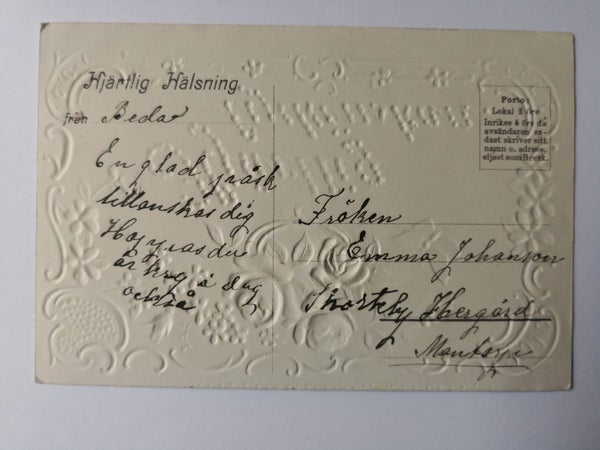 Hjärtlig Hälsning
från Beda
En glad påsk
tillönskas dig
Hoppas du
är kry i dag
också
Porto:
Lokal 2 öre
Inrikes 4 öre då
avsändaren en-
dast skriver sitt
namn o. adress,
eljest som Brefk.
Fröken
Emma Johanson
Hergård
Mantorp